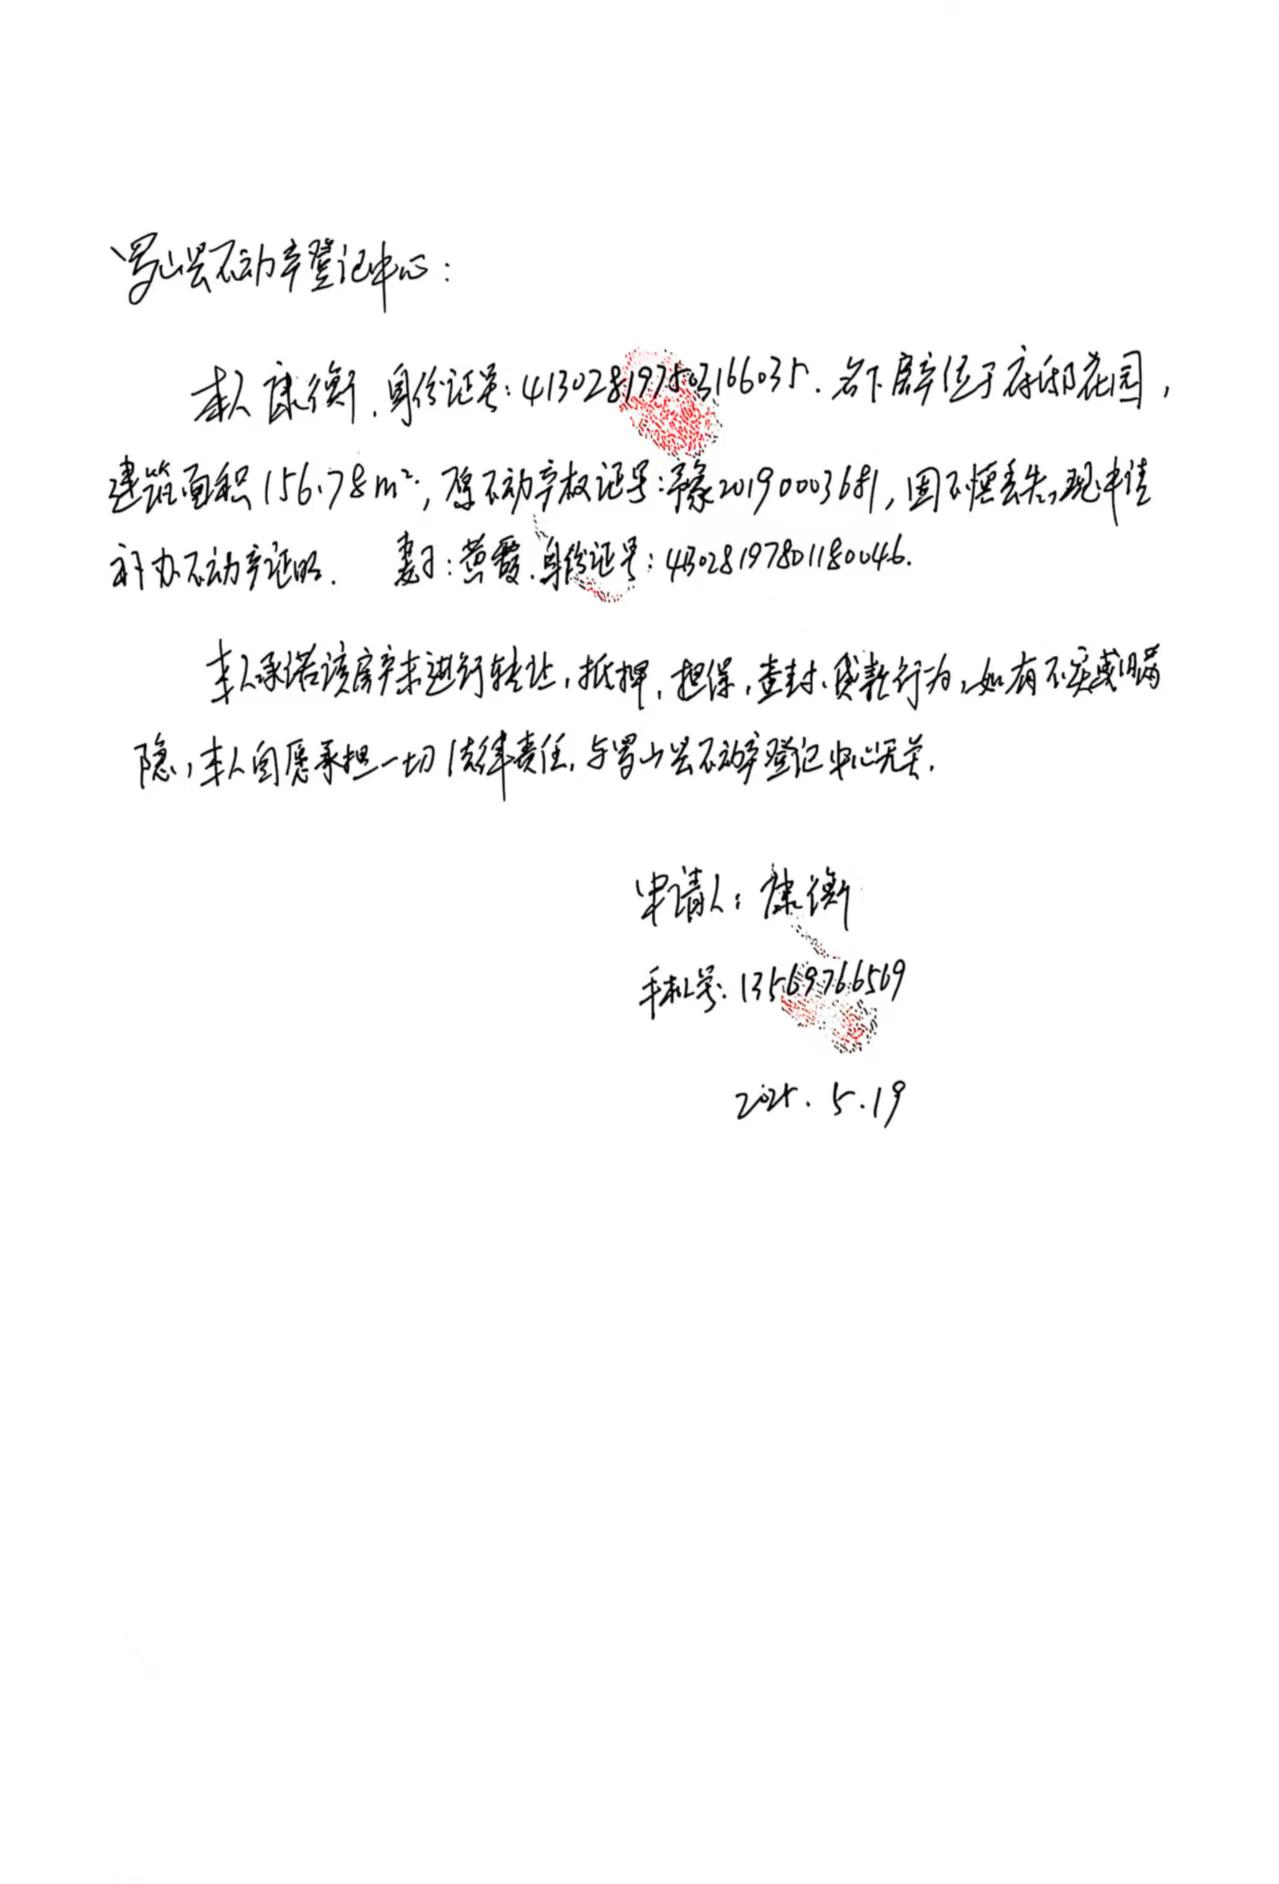 罗山县不动产登记中心：
本人康衡，身份证号：413028197503166035．名下房产位于府邸花园，
建筑面积156.78m²，原不动产权证号：豫20190003681，因不慎丢失，现申请
补办不动产证明．妻子：黄霞．身份证号：413028197801180046．
本人承诺该房产未进行转让，抵押，担保，查封、贷款行为，如有不实或瞒
隐，本人自愿承担一切法律责任，与罗山县不动产登记中心无关．
申请人：康衡
手机号：13569766569
2025．5．19